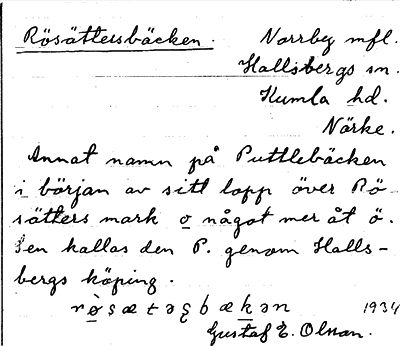 Rösättersbäcken. Norrby mfl.
Hallsbergs sn.
Kumla hd.
Närke.
Annat namn på Puttlebäcken
i början av sitt lopp över Rö
sätters mark o något mer åt ö.
Sen kallas den P. genom Halls-
bergs köping.
rø̀sætəʂbækən 1934
Gustaf E. Olsson.